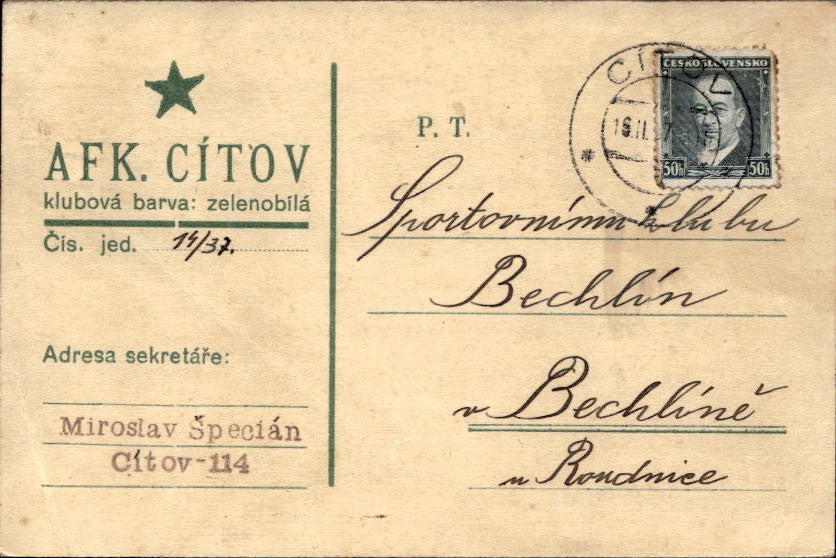 AFK. CÍTOV
klubová barva: zelenobílá
Čís. jed. 14/37.
Adresa sekretáře:
Miroslav Špecián
Cítov-114
P. T.
CÍTOV
ČESKOSLOVENSKO
50h 50h
Sportovnímu klubu
Bechlín
v Bechlíně
u Roudnice